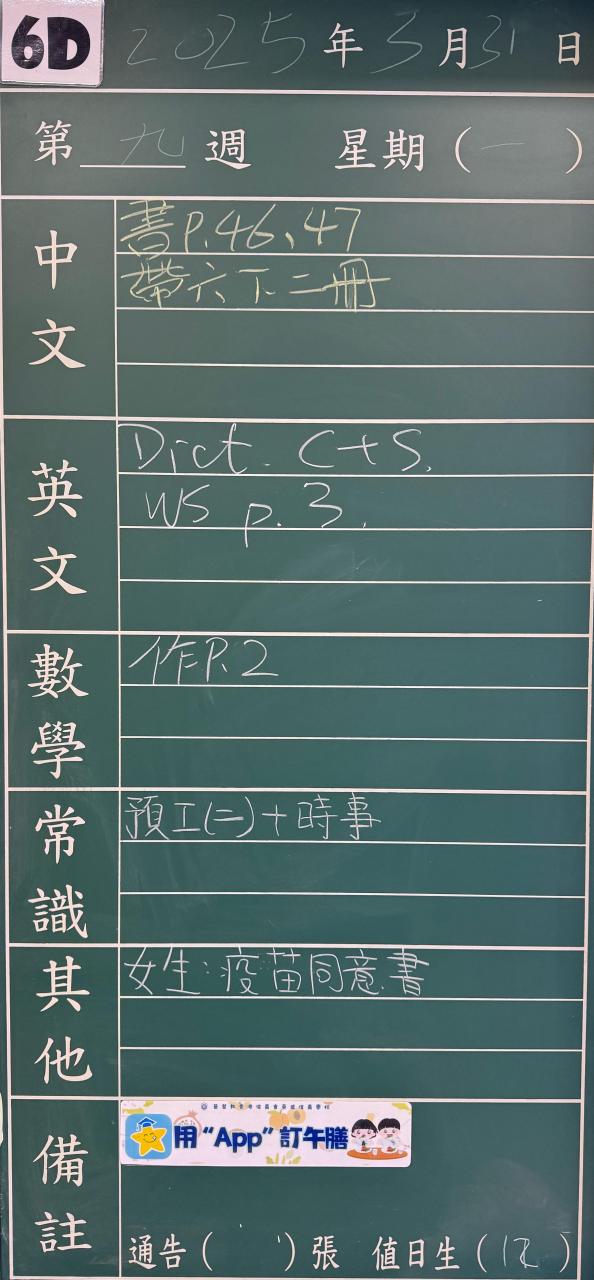 6D 2025年3月31日
第九週 星期(一)
中文
書P.46、47
帶六下二冊
英文
Dict. C+S.
WS p.3.
數學
作P.2
常識
預工(二)+時事
其他
女生:疫苗同意書
備註
用“App”訂午膳
通告( )張 值日生( )